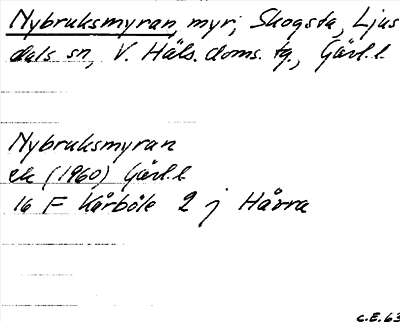 Nybruksmyran, myr; Skogsta, Ljus
dals sn, V. Häls. doms. tg., Gävl. l.
Nybruksmyran
ek (1960) Gävl. l.
16 F Kårböle 2 j Hårra
C.E. 63